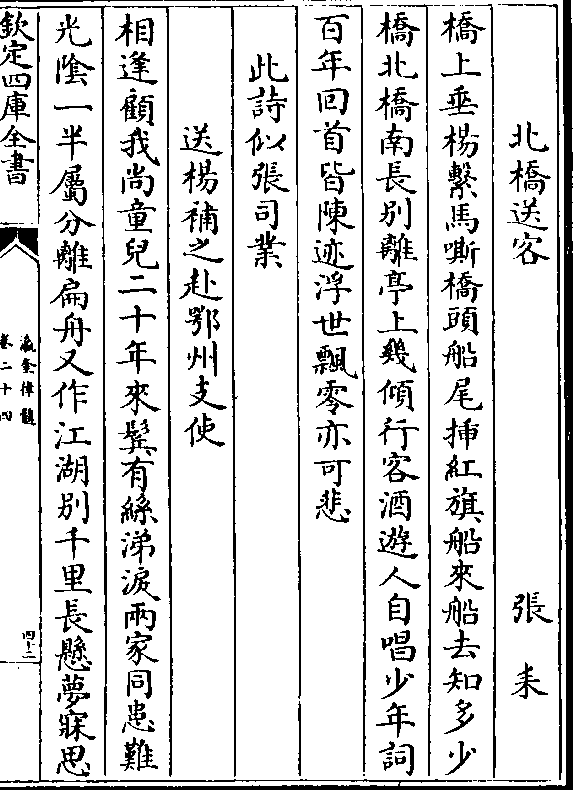 北橋送客　張耒
橋上垂楊繫馬嘶橋頭船尾揷紅旗船來船去知多少
橋北橋南長別離亭上幾傾行客酒遊人自唱少年詞
百年回首皆陳迹浮世飄零亦可悲
此詩似張司業
送楊補之赴鄂州支使
相逢顧我尚童兒二十年來鬂有絲涕淚兩家同患難
光陰一半屬分離扁舟又作江湖別千里長懸夢寐思
欽定四庫全書
瀛奎律髓
卷二十四
四十二